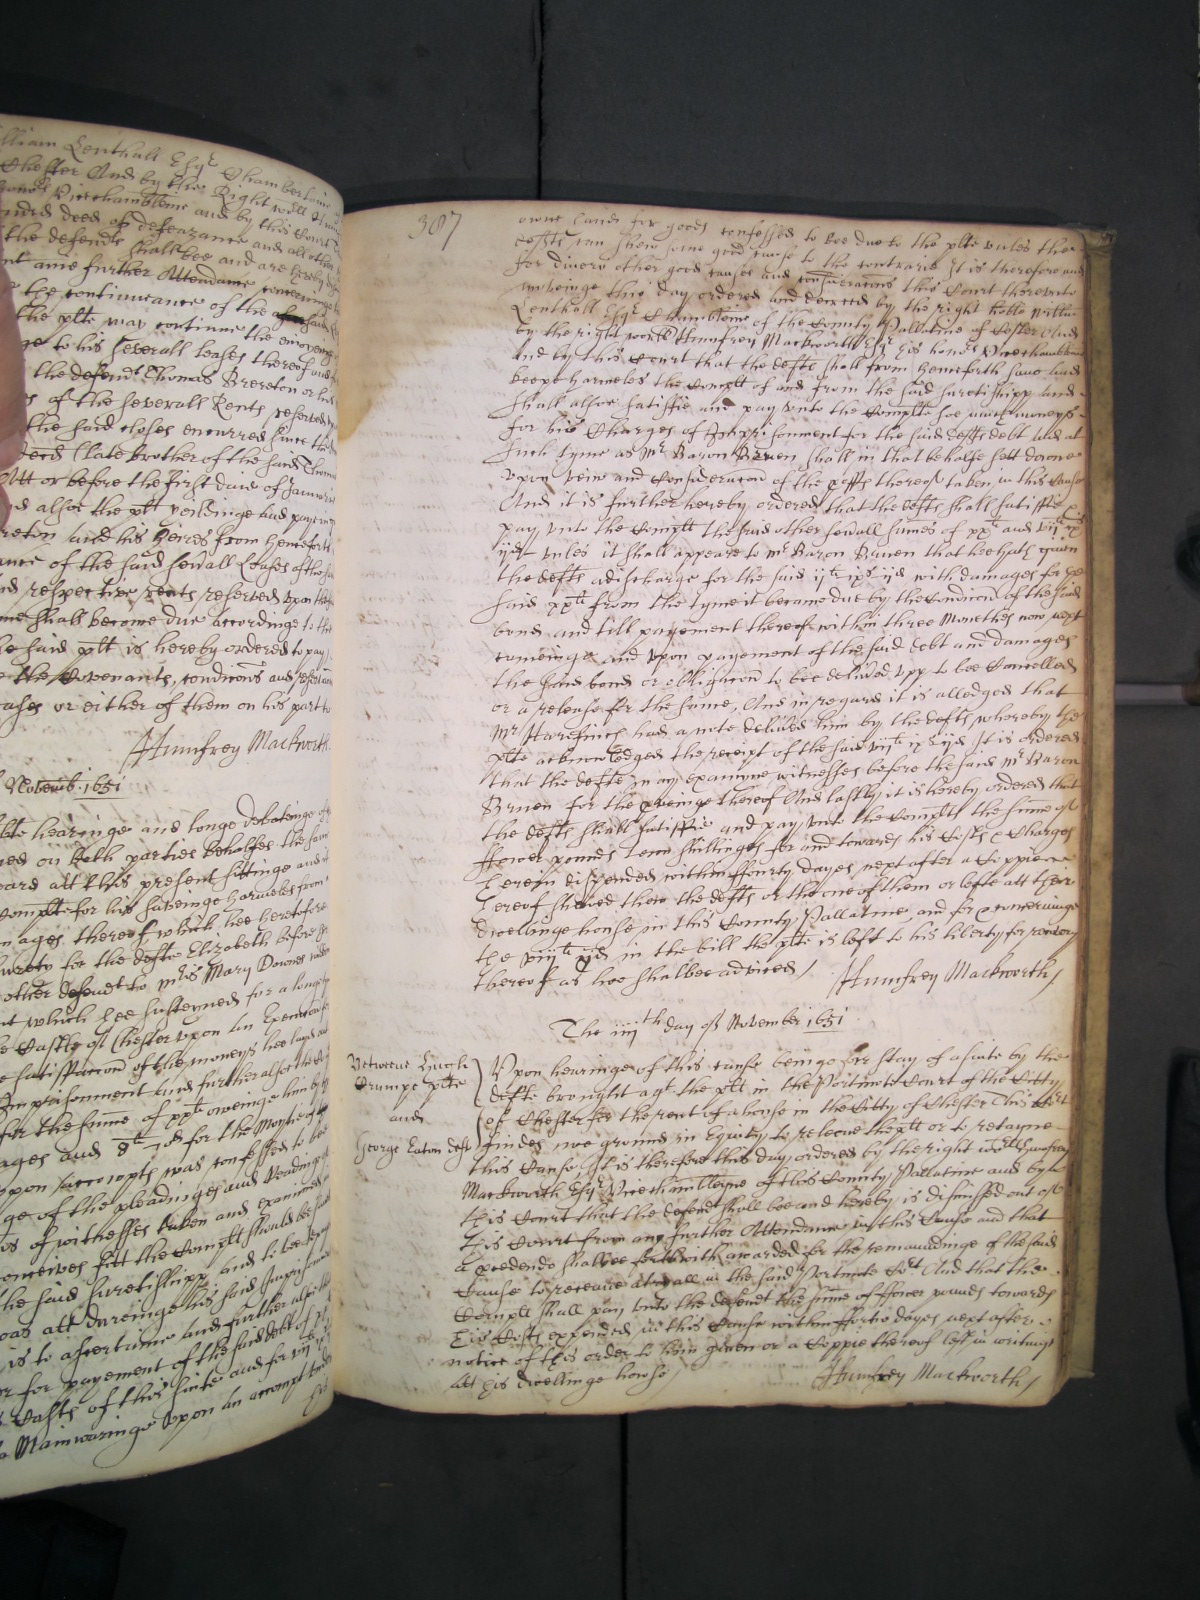 lliam Lenthall Esqr Chamberlaine
Chester And by the Right wor
Vicechamblene and by this Court
deed of defeazance and all other
the defendts shall bee and are hereby
anie further Attendance concerninge
the continuance of the
the plt may continue the
to his severall leases thereof and
the defendt Thomas Brereton or his
of the severall Rents reserved
the said closes encurred since the
late brother of the said Thomas
Att or before the first daie of January
alsoe the plt yeildinge and payeinge
and his heires from henceforth
of the said sevall Leases of the
respective rents reserved upon the
shall become due accordinge to the
said plt is hereby ordered to pay
the Covenants, condicons and
or either of them on his part to
Humfrey Mackworth
Novemb. 1651
hearinge and longe debateinge of
on both parties behalfes the same
att this present sittinge and
Complt for his saveinge harmeles from
thereof, which hee heretofore
surety for the defte Elizabeth before
other defendt to mris Mary Downes
which hee susteyned for a longe
Castle of Chester upon an Execucon
satisfaccon of the moneys hee
Imprisonment and further alsoe the
for the summe of xxli oweinge him by
and for the
upon accompts was confessed to bee
of the pleadinges and Readinge
of wittnesses taken and examined
conceives fitt the Complt should bee
the said suretishipp and to bee
att dureinge his said Imprisonment
is to ascertaine and further alsoe
for payement of the said debt of
Costs of this suite and for
Mainwaringe upon an accompt
387
owne hand for goods confessed to bee due to the plte unles the
defts can shew some good cause to the contrarie It is therefore and
for divers other good causes and consideracons this Court thereunto
moveinge this day ordered and decreed by the right noble William
Lenthall Esqr Chamblaine of the County Pallatine of Chester And
by the right worll Humfrey Mackworth Esqr his honors Vicechamblene
And by this Court that the defts shall from henceforth save and
keepe harmeles the Complt of and from the said suretishipp and
shall alsoe satisfie and pay unto the Complte soe much moneys
for his Charges of Imprisonment for the said defts debt and at
such tyme as Mr Baron Bruen shall in that behalfe sett downe
upon veiw and Consideracon of the proffs thereof taken in this Cause
And it is further hereby ordered that the defts shall satisfie &
pay unto the Complt the said other sevall summes of xxli and viijli ixs
ijd unles it shall appeare to Mr Baron Bruen that hee hath given
the defts a discharge for the said ixs ijd with damages for the
said xxli from the tyme it became due by the Condicon of the said
bond and till payement thereof within three Monethes now next
comeinge and upon payement of the said debt and damages
the said bond or obligacon to bee delived upp to bee Cancelled
or a release for the same, And in regard it is alledged that
Mr had a note delived him by the defts whereby the
plte acknowledged the receipt of the said viijli ixs ijd It is ordered
that the defts may examyne wittnesses before the said Mr Baron
Bruen for the proveinge thereof And lastly it is hereby ordered that
the defts shall satisfie and pay unto the Complt the summe of
ffower pounds tenn shillinges for and towards his Costs & Charges
herein dispended within ffourty dayes next after a Coppie
hereof shewed them the defts or the one of them or lefte att their
dwellinge house in this County Pallatine, and for concerninge
the viijli in the bill the plte is left to his liberty for recovery
thereof as hee shalbee advised / Humfrey Mackworth /
The iiijth day of November 1651.
Betweene Hugh
Crumpe plte
and
George Eaton deft
Upon hearinge of this cause beinge for stay of a suite by the
defte brought agt the plt in the Portmote Court of the Citty
of Chester for the rent of a house in the Citty of Chester This Court
findes noe ground in Equity to releeve the plt or to retayne
this Cause It is therefore this day ordered by the right worll Humfrey
Mackworth Esqr Vicechamblene of this County Pallatine and by
this Court that the defendt shall bee and hereby is dismissed out of
this Court from any further Attendance in this Cause and that
a procedendo shalbee forthwith awarded for the remaundinge of the said
Cause to receave att all in the said Portmote Cort And that the
Complt shall pay unto the defendt the summe of ffower pounds towards
his Costs expended in this Cause within fforty dayes next after
notice of this order to him given or a Coppie thereof left in writinge
att his dwellinge house / Humfrey Mackworth /